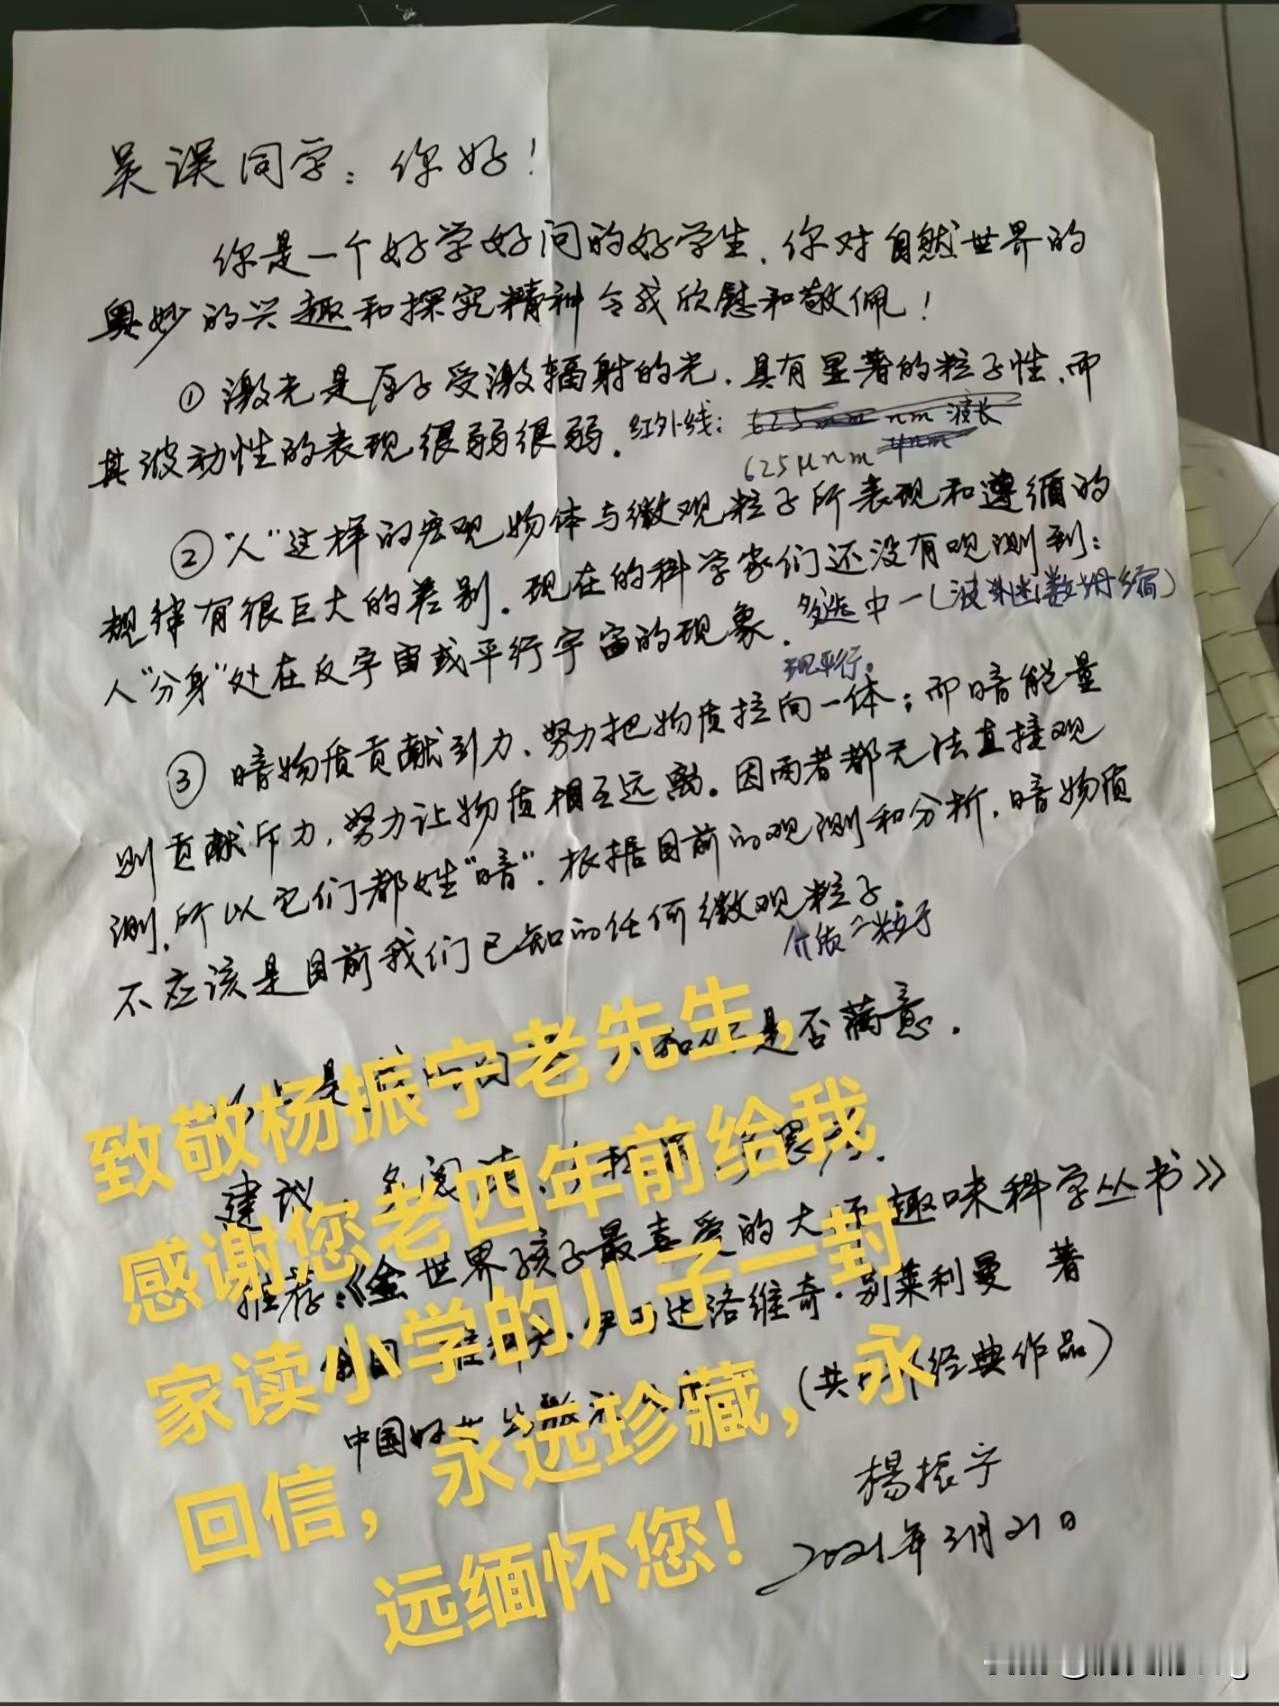 吴误同学：你好！
你是一个好学好问的好学生，你对自然世界的
奥妙的兴趣和探究精神令我欣慰和敬佩！
① 激光是原子受激辐射的光，具有显著的粒子性，而
其波动性的表现很弱很弱。红外线：
625μnm
②“人”这样的宏观物体与微观粒子所表现和遵循的
规律有很巨大的差别。现在的科学家们还没有观测到：
人“分身”处在反宇宙或平行宇宙的现象。多选中一（波函数坍缩）
现平行。
③ 暗物质贡献引力，努力把物质拉向一体；而暗能量
则贡献斥力，努力让物质相互远离。因两者都无法直接观
测，所以它们都姓“暗”。根据目前的观测和分析，暗物质
不应该是目前我们已知的任何微观粒子
是否满意。
建议 多阅读
推荐：《全世界孩子最喜爱的大师趣味科学丛书》
洛维奇·别莱利曼 著
中国 (共 经典作品)
楊振宁
2021年3月21日
致敬杨振宁老先生，
感谢您老四年前给我
家读小学的儿子一封
回信，永远珍藏，永
远缅怀您！